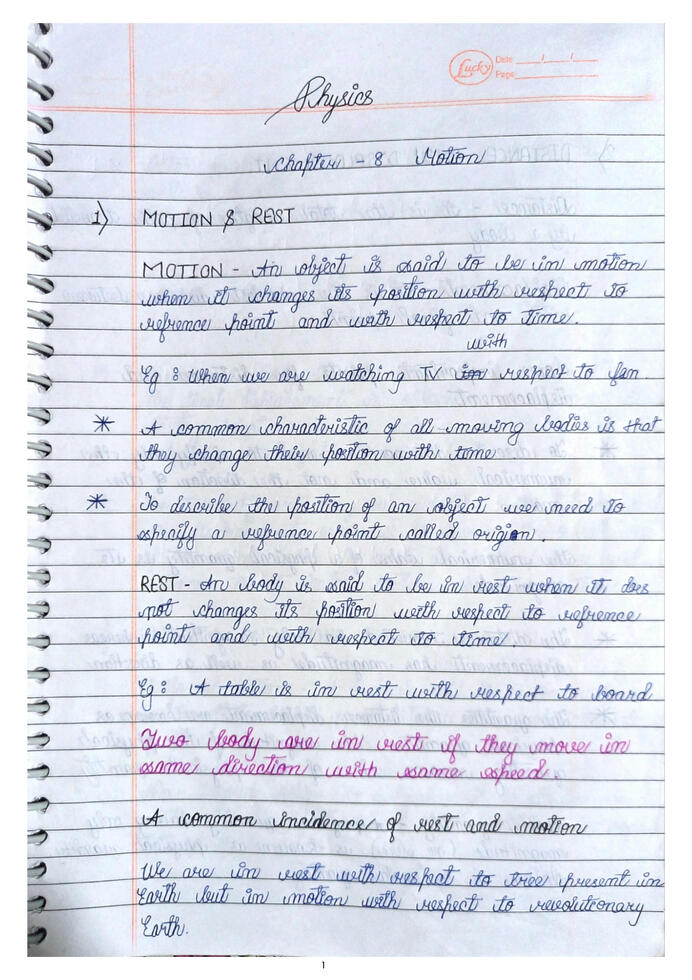 Lucky Date / /
Page
Physics
Chapter - 8 Motion
1) MOTION & REST
MOTION - An object is said to be in motion
when it changes its position with respect to
refrence point and with respect to time.
with
Eg : When we are watching TV in respect to fan.
* A common characteristic of all moving bodies is that
they change their position with time
* To describe the position of an object we need to
specify a refrence point called origion.
REST - An body is said to be in rest when it does
not changes its position with respect to refrence
point and with respect to time.
Eg : A table is in rest with respect to board
Two body are in rest if they move in
same direction with same speed.
A common incidence of rest and motion
We are in rest with respect to tree present in
Earth but in motion with respect to revolutionary
Earth.
1